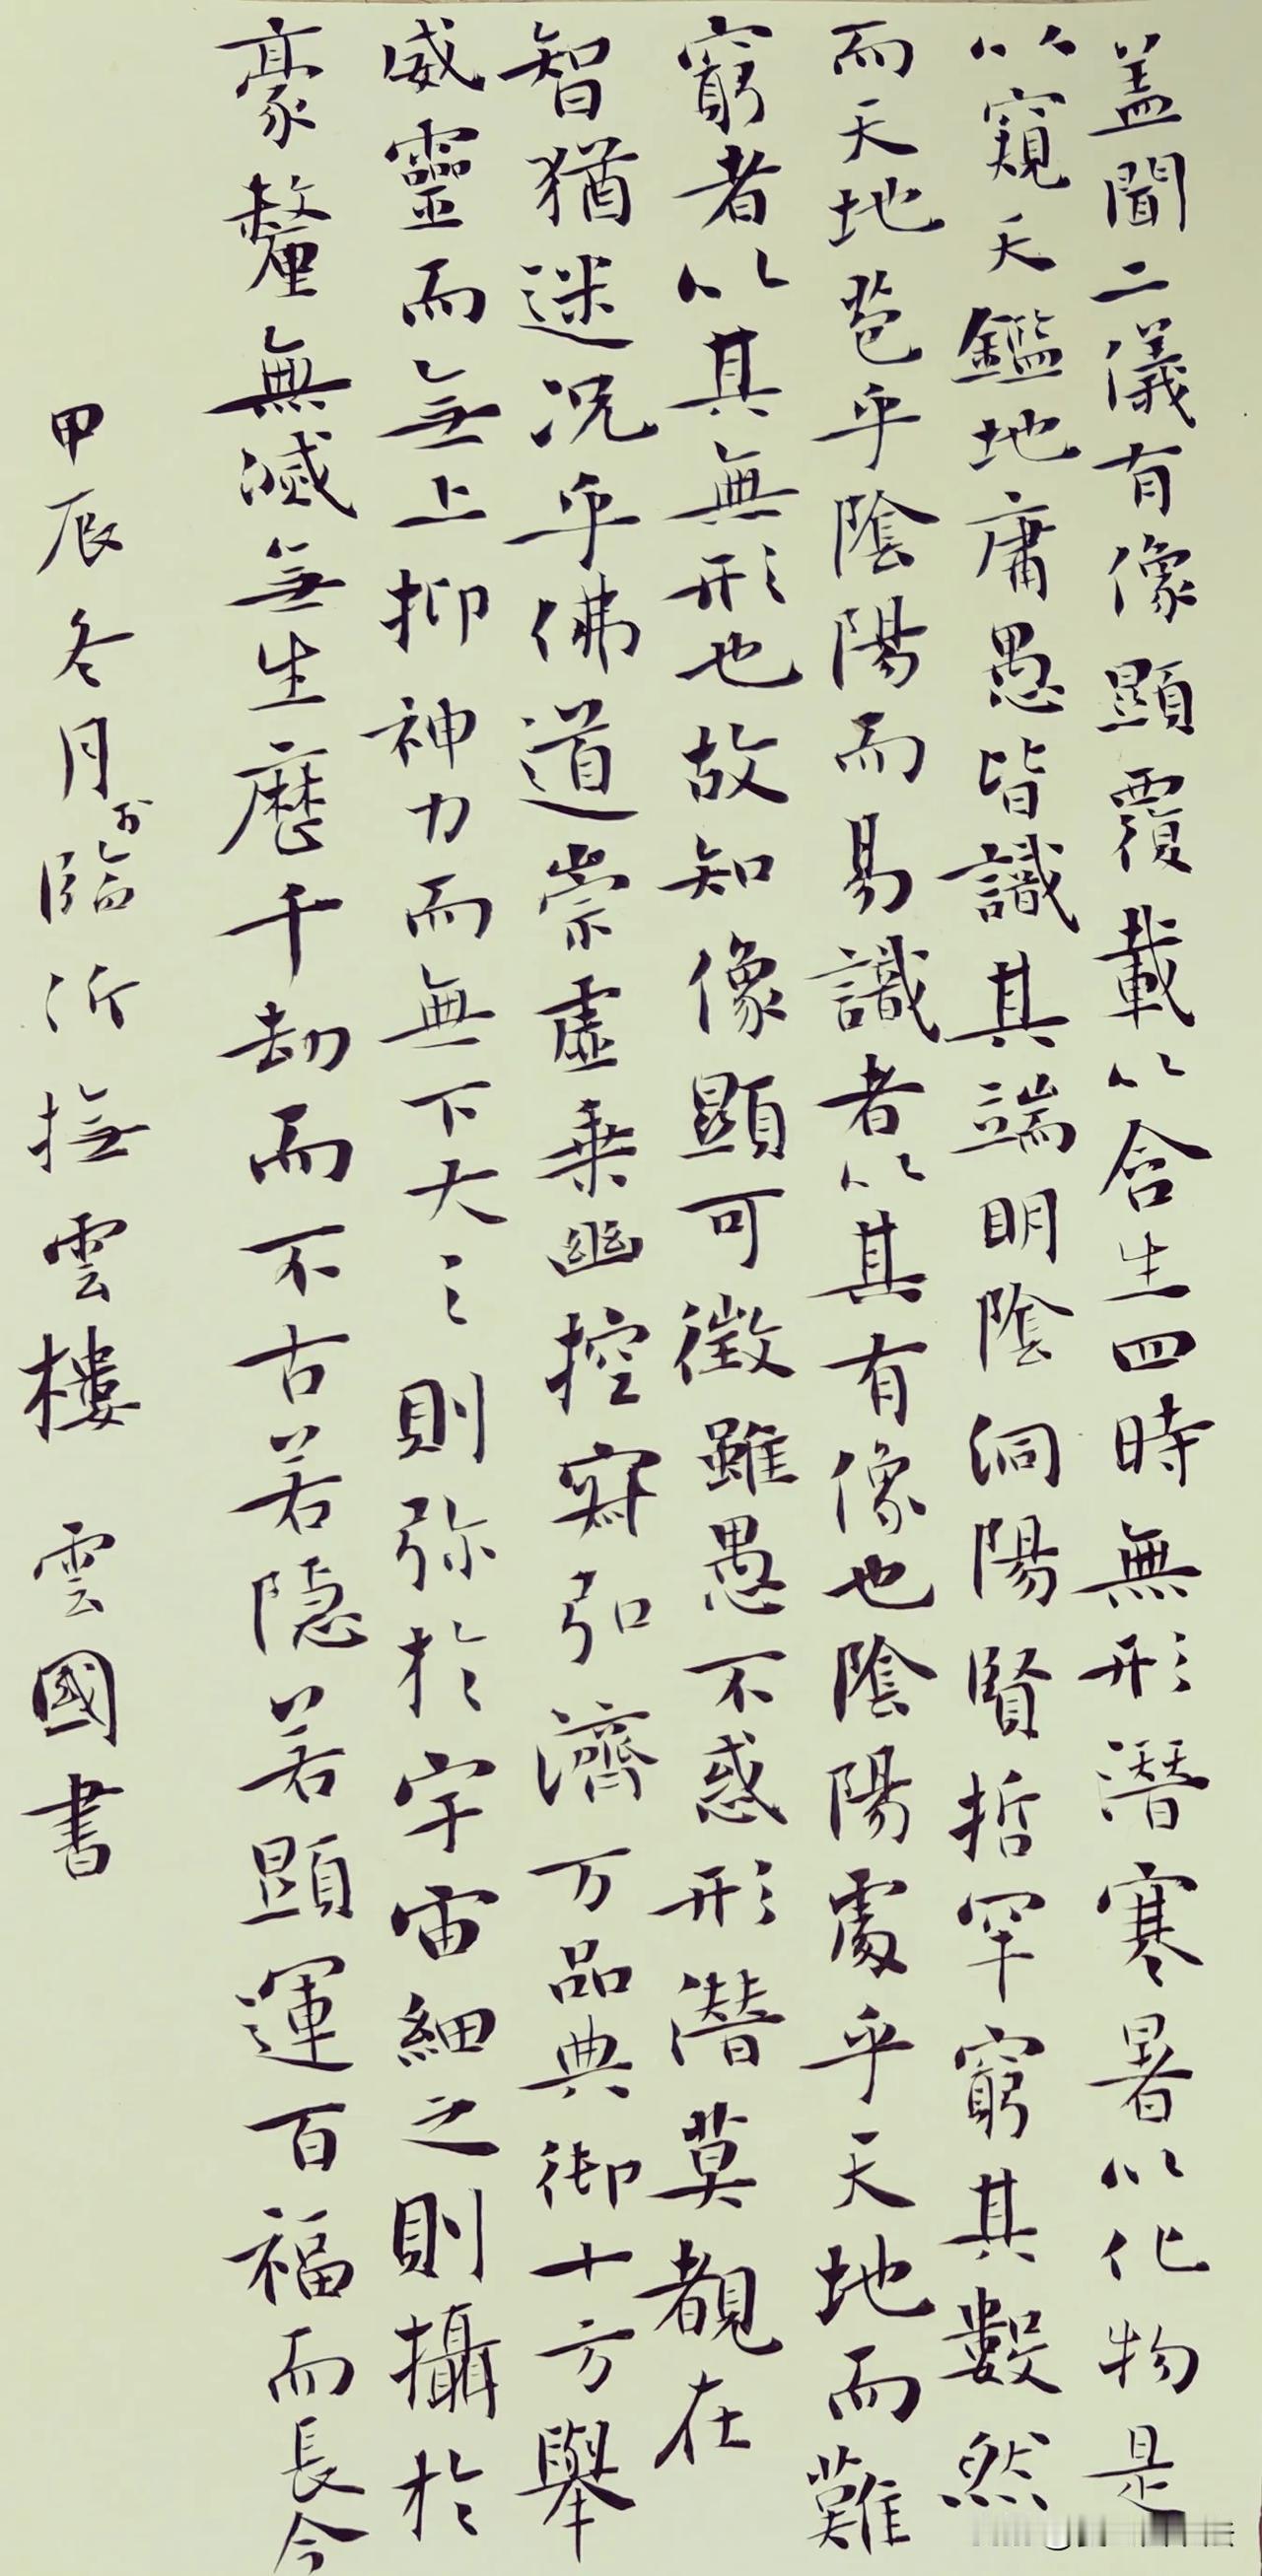 盖聞二儀有像顯覆載以含生四時無形潛寒暑以化物是
以窺天鑑地庸愚皆識其端明陰洞陽賢哲罕窮其數然
而天地苞乎陰陽而易識者以其有像也陰陽處乎天地而難
窮者以其無形也故知像顯可徵雖愚不惑形潛莫覩在
智猶迷况乎佛道崇虛乘幽控寂弘濟万品典御十方舉
威靈而無上抑神力而無下大之則弥於宇宙細之則攝於
豪釐無滅無生歷千劫而不古若隱若顯運百福而長今
甲辰冬月於臨沂撫雲樓 雲國書